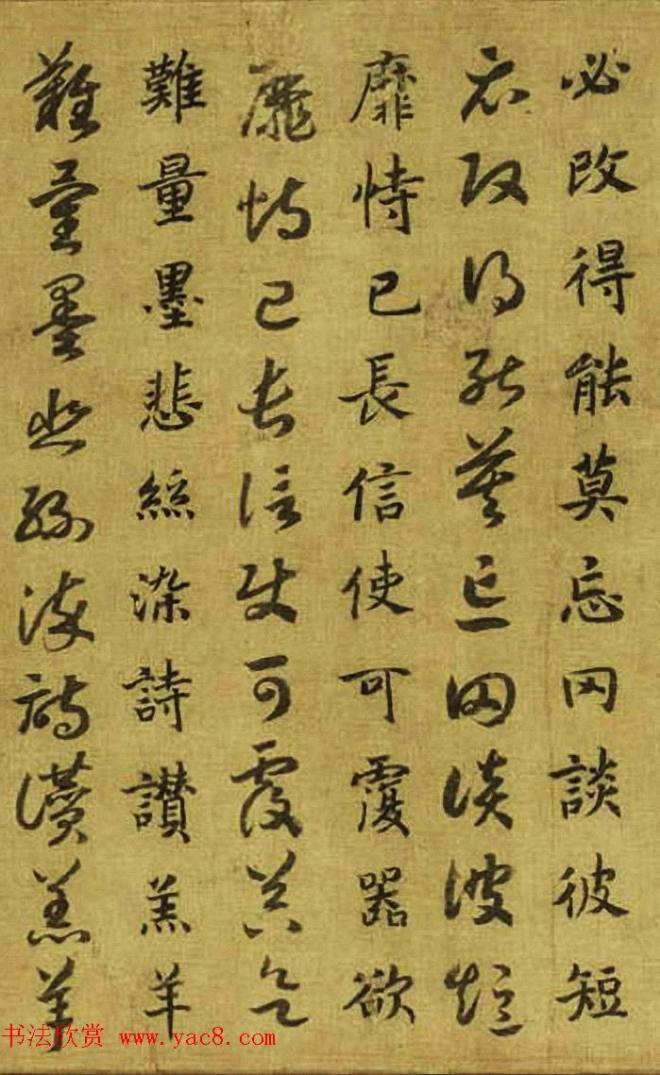 必改得能莫忘罔談彼短
必改得能莫忘罔談彼短
靡恃己長信使可覆器欲
靡恃己長信使可覆器欲
難量墨悲絲染詩讚羔羊
難量墨悲絲染詩讚羔羊
书法欣赏 www.yac8.com